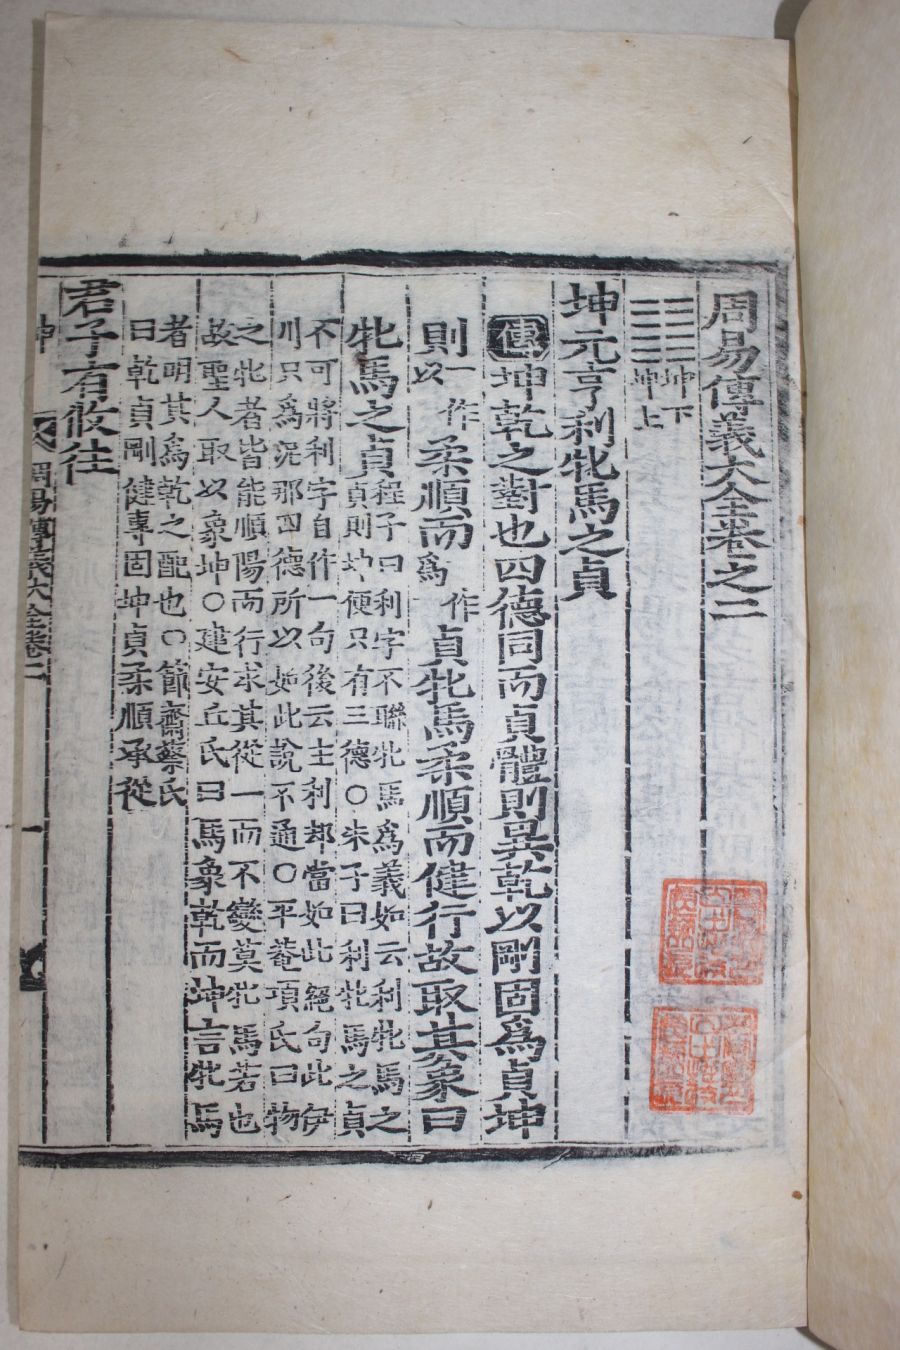 周易傳義大全卷之二
坤下
坤上
坤元亨利牝馬之貞
傳坤乾之對也四德同而貞體則異乾以剛固爲貞坤
則一作以柔順而一作爲貞牝馬柔順而健行故取其象曰
牝馬之貞
程子曰利字不聯牝馬爲義如云利牝馬之
貞則坤便只有三德○朱子曰利牝馬之貞
不可將利字自作一句後云主利却當如此絕句此伊
川只爲泥那四德所以如此說不通○平菴項氏曰物
之牝者皆能順陽而行求其從一而不變莫牝馬若也
故聖人取以象坤○建安丘氏曰馬象乾而坤言牝馬
者明其爲乾之配也○節齋蔡氏
曰乾貞剛健專固坤貞柔順承從
君子有攸往
坤
周易傳義大全卷二
一